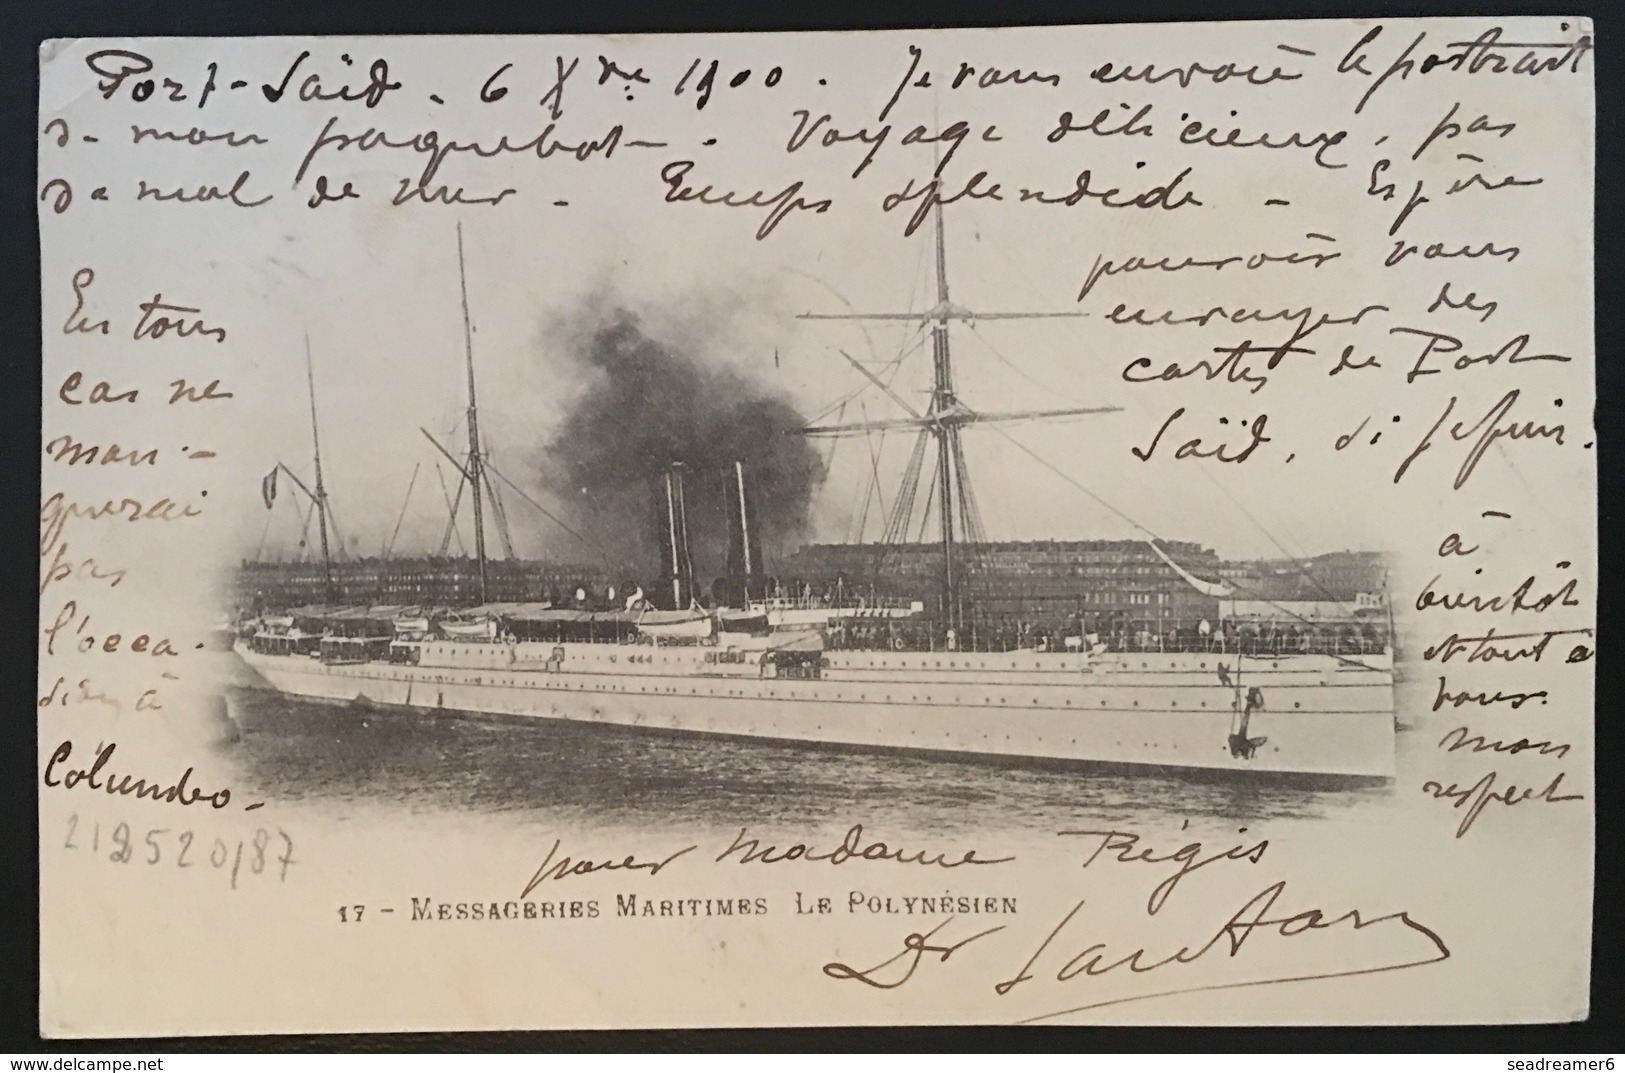 Port-Saïd - 6 Xbre 1900. Je vous envoie le portrait
de mon paquebot - Voyage délicieux, pas
de mal de mer - Temps splendide - Espère
pouvoir vous
envoyer des
cartes de Port
Saïd, si je puis.
à
bientôt
et tout à
vous.
mon
respect
pour Madame Régis
En tous
cas ne
man-
querai
pas
l'occa-
sion à
Colombo -
212520/87
17 - MESSAGERIES MARITIMES LE POLYNÉSIEN
Dr
seadreamer6
www.delcampe.net